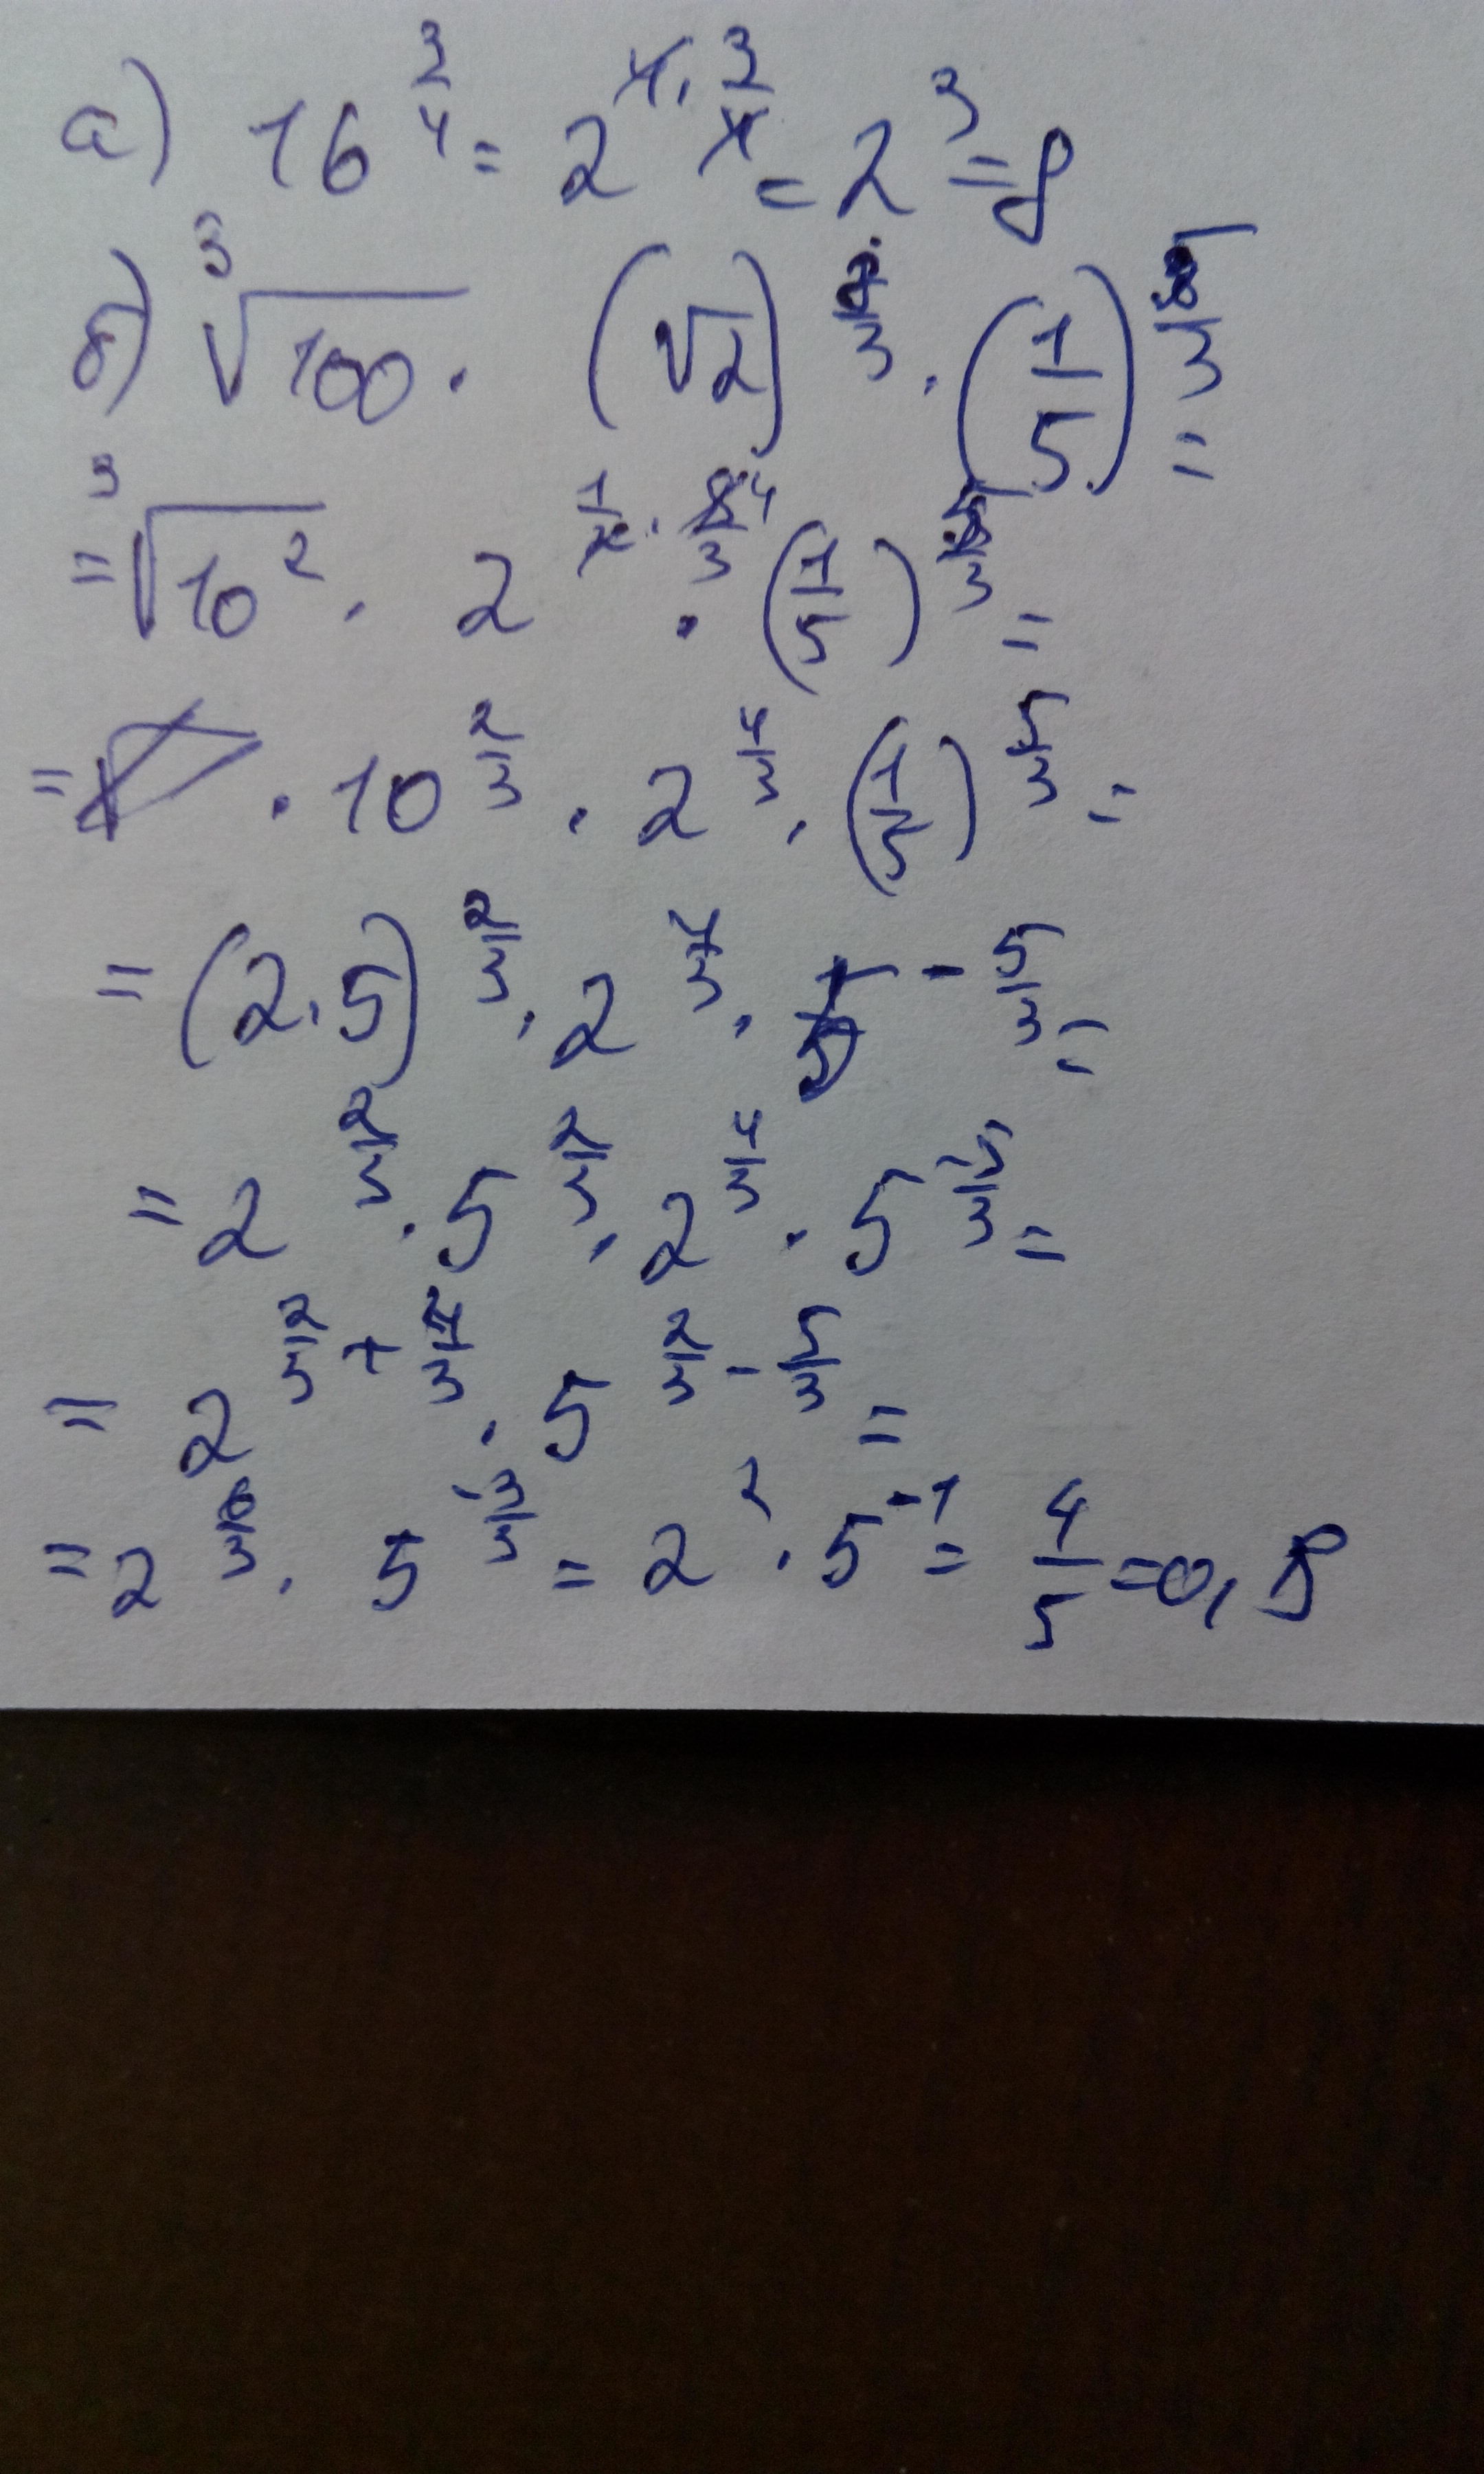 а) 16^(3/4) = 2^(4·3/4) = 2^3 = 8
б) ∛100 · (√2)^(8/3) · (1/5)^(5/3) =
= ∛10^2 · 2^(1/2 · 8/3 4) · (1/5)^(5/3) =
= · 10^(2/3) · 2^(4/3) · (1/5)^(5/3) =
= (2·5)^(2/3) · 2^(4/3) · 5^(-5/3) =
= 2^(2/3) · 5^(2/3) · 2^(4/3) · 5^(-5/3) =
= 2^(2/3 + 4/3) · 5^(2/3 - 5/3) =
= 2^(6/3) · 5^(-3/3) = 2^2 · 5^(-1) = 4/5 = 0,8